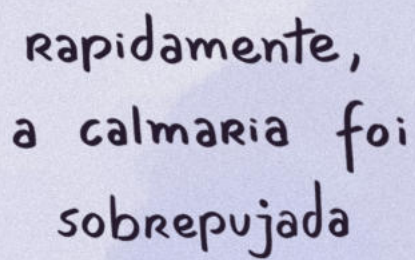 Rapidamente,
a calmaria foi
sobrepujada